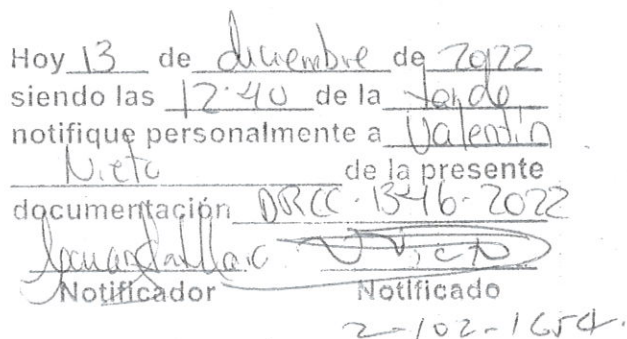 Hoy 13 de diciembre de 2022
siendo las 12:40 de la tarde
notifique personalmente a Valentín
Nieto de la presente
documentación DRCC-1346-2022
Notificador Notificado
2-102-1654.